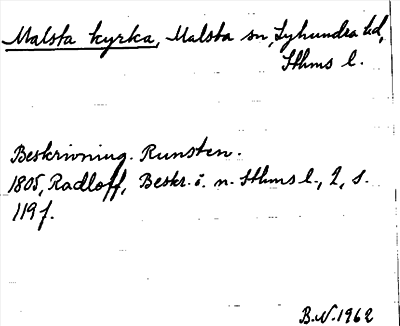 Malsta kyrka, Malsta sn, Lyhundra hd,
Sthms l.
Beskrivning. Runsten.
1805, Radloff, Beskr. ö. n. Sthms l., 2, s.
119 f.
B.N. 1962